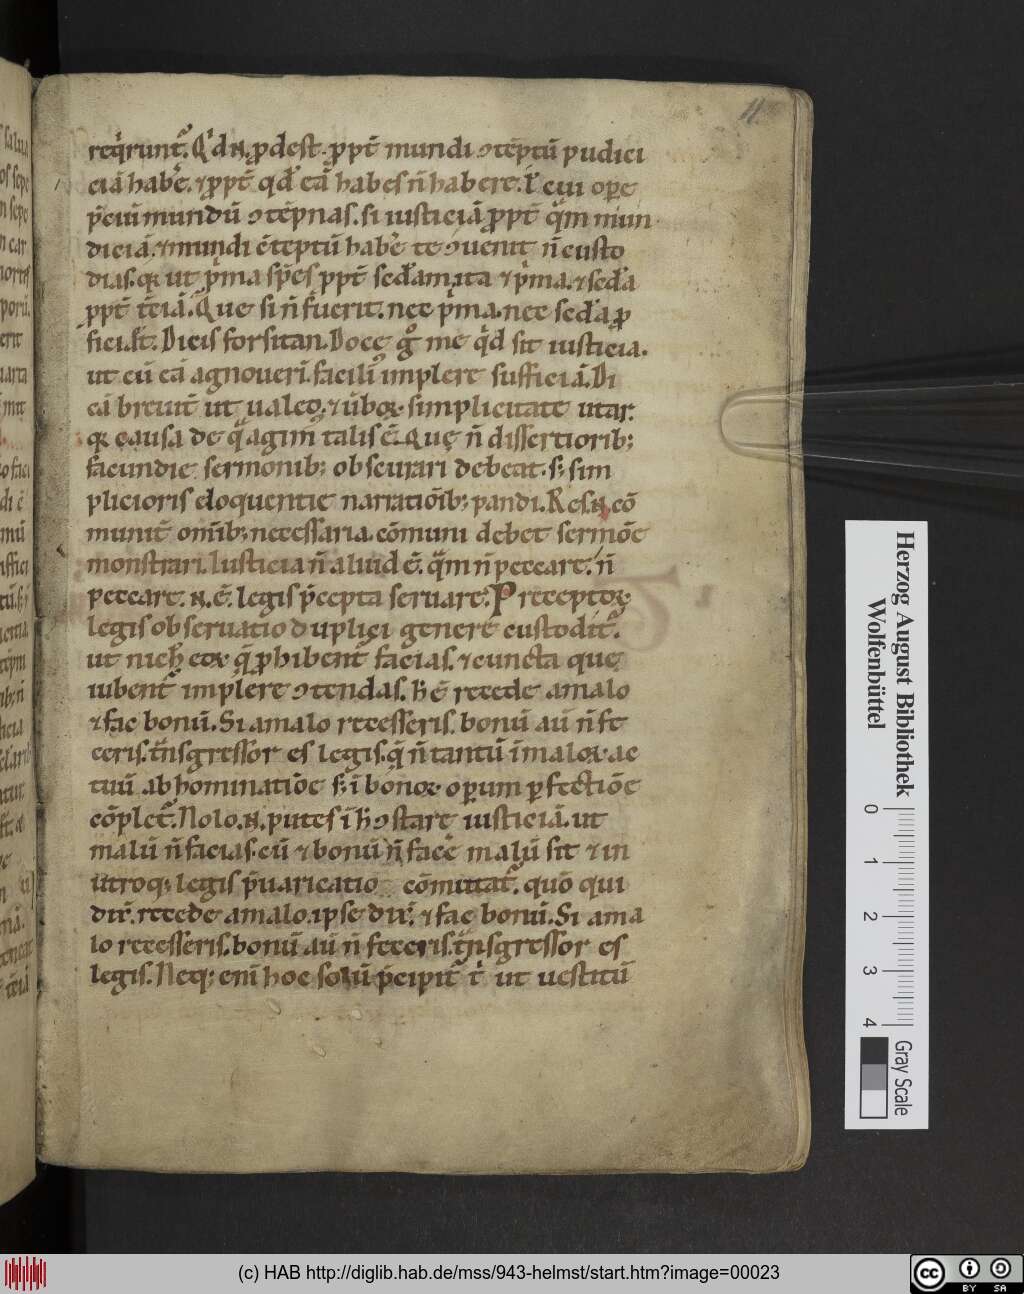 reqͥrunt᷒. Qͥd .n. ꝓdest. ꝓpt̄ mundi ɔtēptū pudici
ciā habe᷒. ⁊ ꝓpt̄ qd̄ eā habes n̄ habere. l̄ cui ope᷒
p̄ciū mundū ɔtēpnas. si iusticiā ꝓpt̄ qͣm mun
diciā. ⁊ mundi ɔ̄teptū habe᷒ te ɔuenit n̄ custo
dias. qꝛ ut pͥma sp̄es ꝓpt̄ sed̄am. ita ⁊ pͥma. ⁊ sed̄a
ꝓpt̄ t̄ciā. Que si n̄ fuerit. nec pͥma. nec sed̄a ꝓ
ficiet᷒. Dicis forsitan. Doce gͦ me qͥd sit iusticia.
ut cū eā agnoueri᷒. facili᷒ implere sufficiā. Di
cā breuit᷒ ut ualeo. ⁊ ūboꝝ simplicitate utar.
qꝛ causa de qͣ agim᷒ talis ē. Que n̄ dissertiorib;
facundie sermonib; obscurari debeat. s; sim
plicioris eloquentie narratiōib; pandi. Res .n. cō
munit᷒ omīb; necessaria. cōmuni debet sermōe
monstrari. Iusticia n̄ aluid ē. qͣm n̄ peccare. n̄
peccare .n. ē. legis p̄cepta seruare. Preceptoꝝ
legis obseruatio duplici genere custodit᷒.
ut nich̄ eoꝝ q̄ ꝓhibent᷒ facias. ⁊ cuncta que
iubent᷒ implere ɔtendas. h̄ ē recede a malo
⁊ fac bonū. Si a malo recesseris. bonū au᷒ n̄ fe
ceris. tͣnsgressor es legis. q̄ n̄ tantū ī maloꝝ ac
tuū abhominatiōe s; ī bonoꝝ operum ꝑfectiōe
cōplet᷒. Nolo .n. putes ī h̄ ɔstare iusticiā. ut
malū n̄ facias. cū ⁊ bonū n̄ face᷒ malū sit ⁊ in
utroq; legis p̄uaricatio cōmittat᷒. quō qui
dix᷒. recede a malo. ipse dix᷒. ⁊ fac bonū. Si a ma
lo recesseris. bonū au᷒ n̄ feceris. tͣnsgressor es
legis. Neq; enī hoc solū p̄cipit᷒ t᷒ ut uestitū
4
Herzog August Bibliothek
Wolfenbüttel
0 1 2 3 4
Gray Scale
(c) HAB http://diglib.hab.de/mss/943-helmst/start.htm?image=00023
cc BY SA